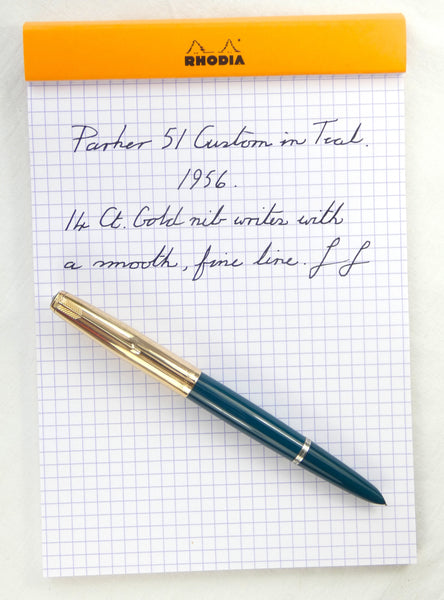 RHODIA
Parker 51 Custom in Teal.
1956.
14 Ct. Gold nib writes with
a smooth, fine line. f f